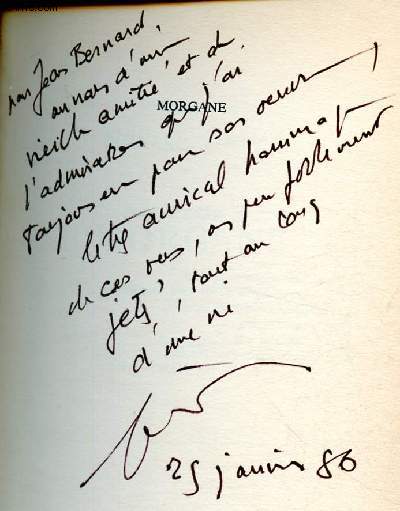 pour Jean Bernard,
au nom d'une
vieille amitié, et de
MORGANE
l'admiration que j'ai
toujours eu pour son oeuvre,
le très amical hommage
de ces vers, un peu
jetés, tout au long
d'une vie
25 janvier 86